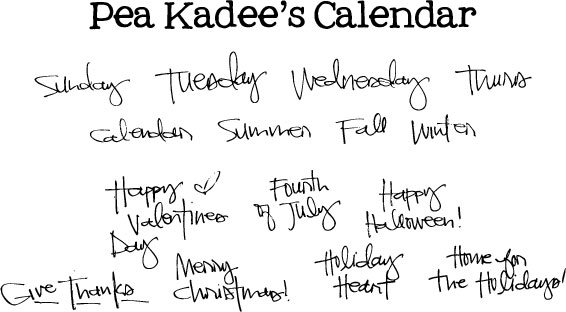 Pea Kadee's Calendar
Sunday Tuesday Wednesday Thurs
Calendar Summer Fall Winter
Happy
Valentines
Day
Fourth
of July
Happy
Halloween!
Give Thanks
Merry
Christmas!
Holiday
Heart
Home for
the Holidays!